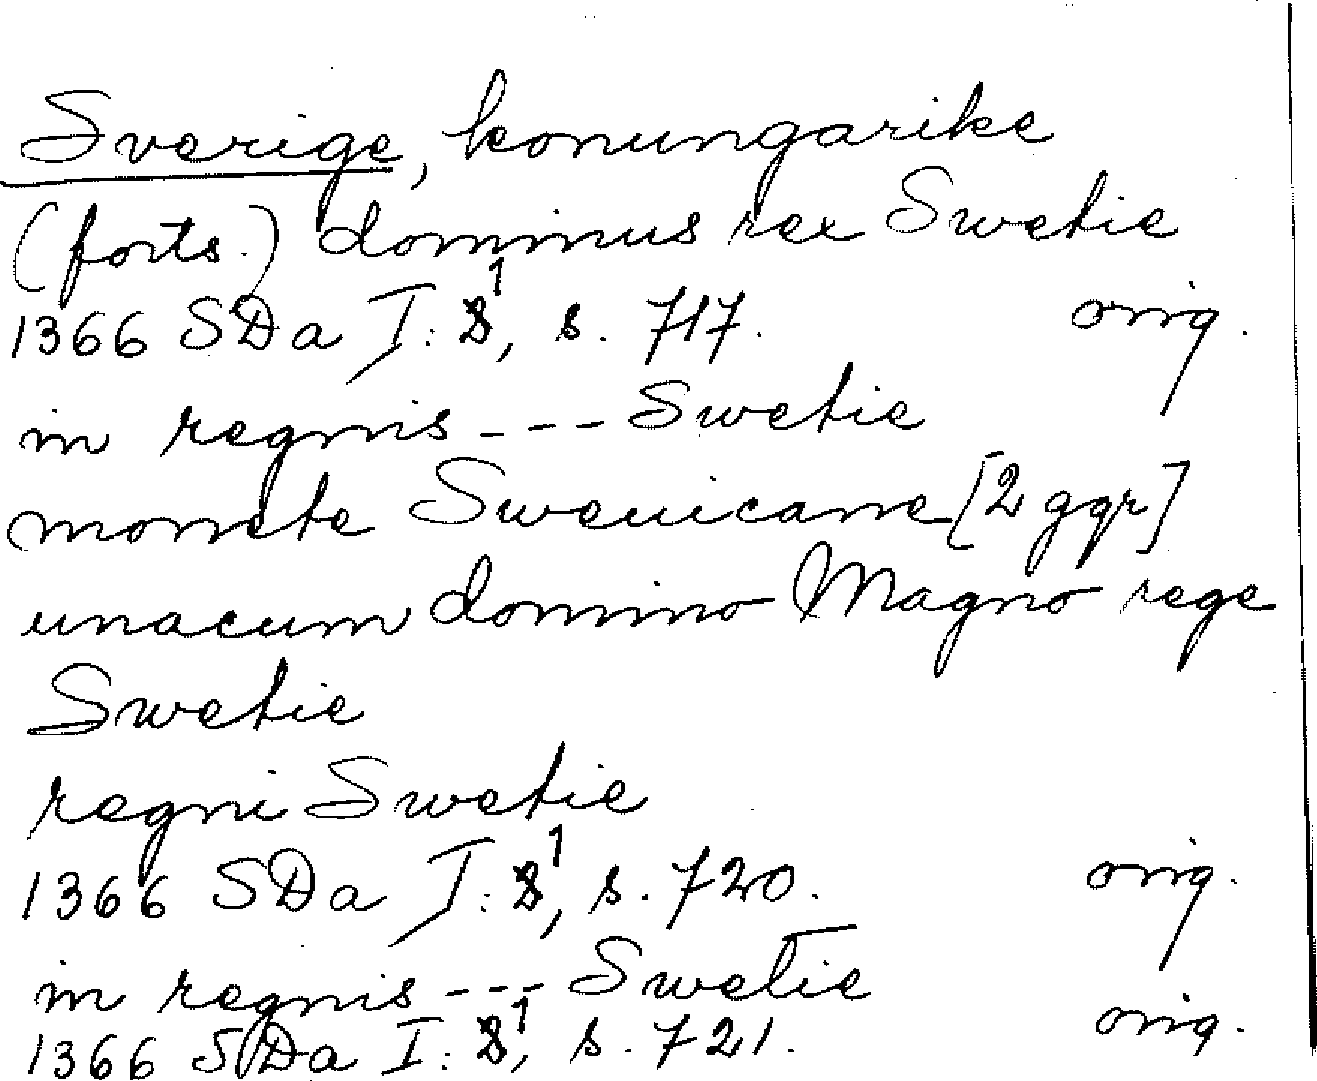 Sverige, konungarike
(forts.) dominus rex Swetie
1366 SDa I: 1, s. 717. orig.
in regnis --- Swetie
monete Sweuicane [2 ggr]
unacum domino Magno rege
Swetie
regni Swetie
1366 SDa I: 1, s. 720. orig.
in regnis --- Swetie
1366 SDa I: 1, s. 721. orig.